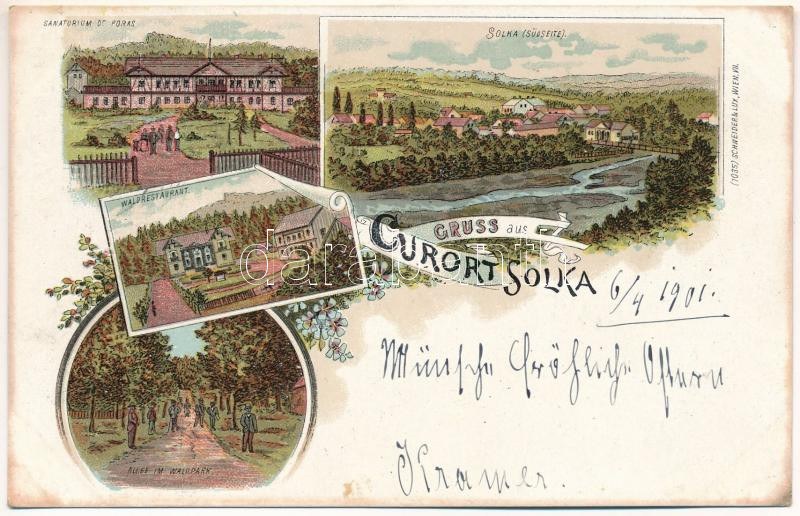 SANATORIUM DR PORAS.
SOLKA (SÜDSEITE).
(1035) SCHNEIDER & LUX, WIEN. VII.
WALDRESTAURANT.
GRUSS aus
CURORT SOLKA
darabanth
6/4 1901.
Wünsche Fröhliche Ostern
Kramer.
ALLEE IM WALDPARK.